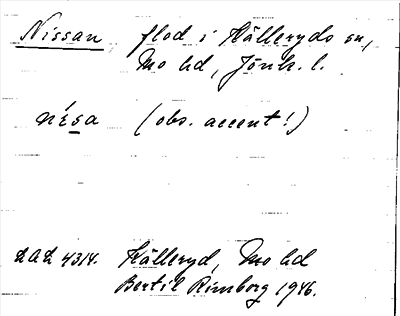 Nissan, flod i Källeryds sn,
Mo hd, Jönk. l.
nísa (obs. accent!)
LAL 4314. Källeryd, Mo hd
Bertil Rimborg 1946.